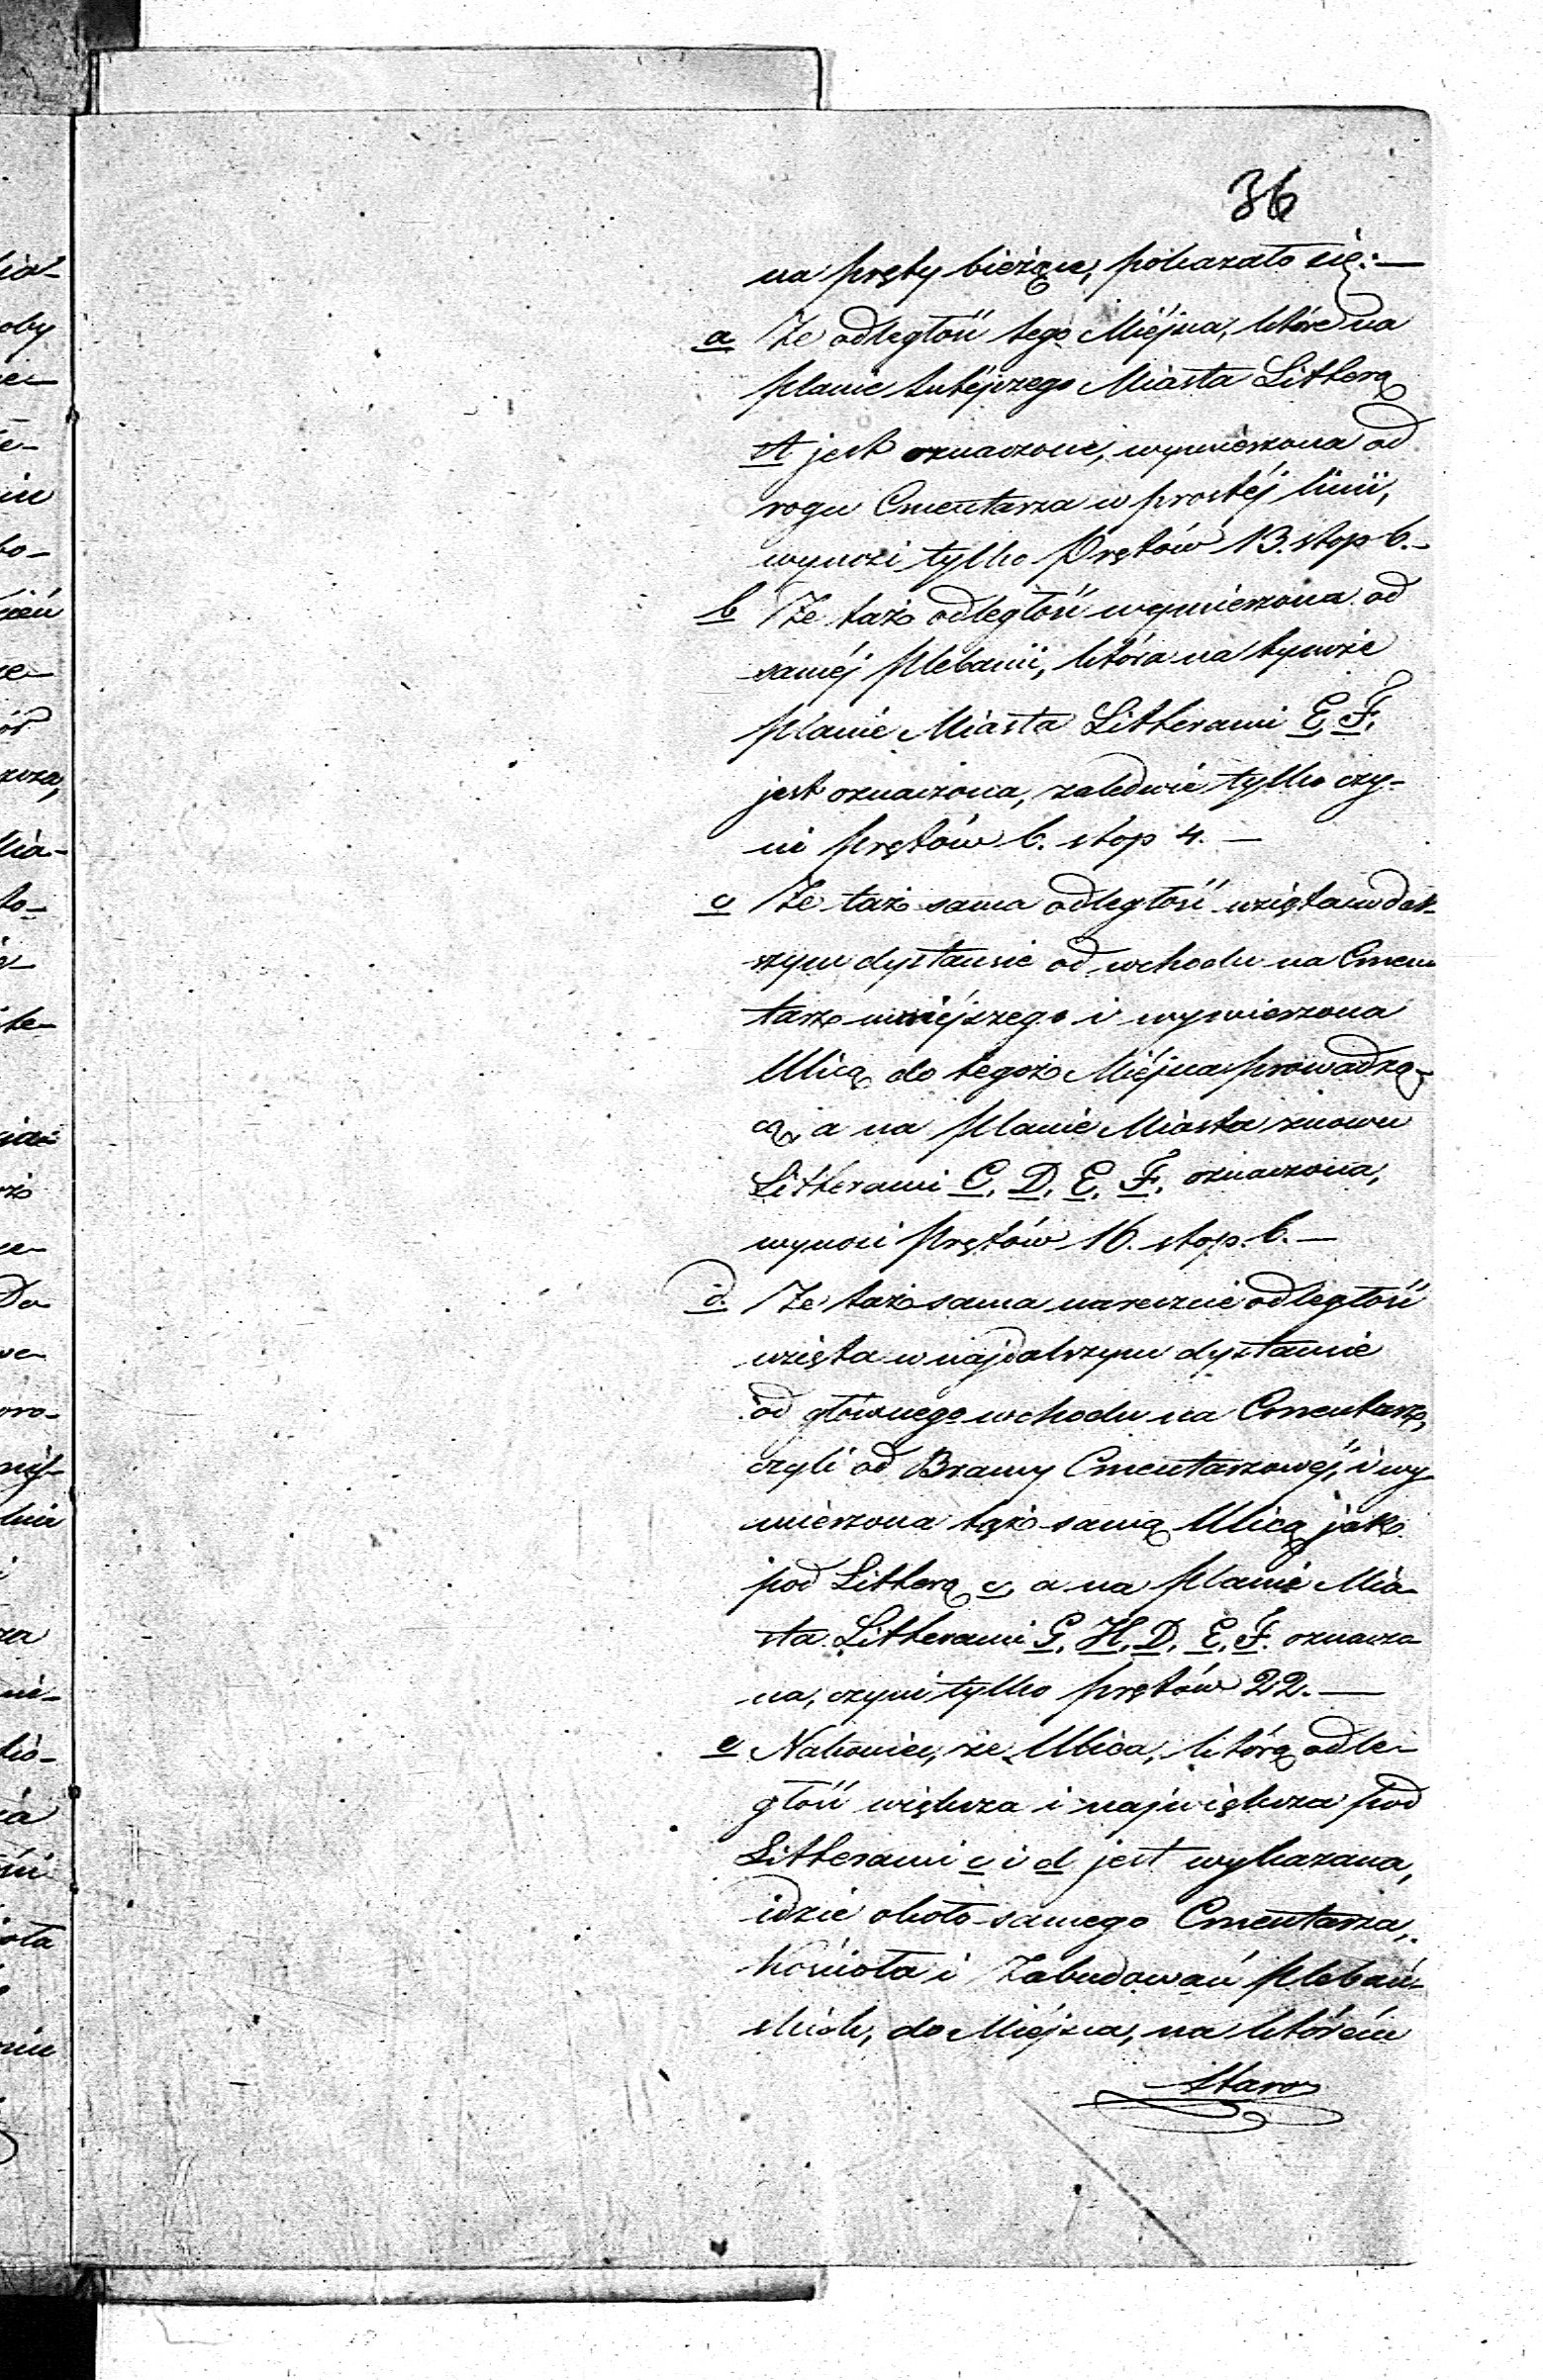 36
na pręty bieżące, pokazało się: —
a Że odległość tego Miéjsca, które na
planie tutéjszego Miasta Litterą
A jest oznaczone, wymierzona od
rogu Cmentarza w prostéj linii,
wynosi tylko Prętów 13. stop 6. –
b Że taż odległość wymierzona od
saméj Plebanii, która na tymże
planie Miasta Litterami E, F,
jest oznaczona, zaledwie tylko czy-
ni prętów 6. stop 4. —
c Że taż sama odległość wzięta w dal-
szym dystansie od wchodu na Cmen
tarz mniéjszego i wymierzona
Ulicą do tegoż Miéjsca prowadzą-
cą, a na planie Miasta znowu
Litterami C, D, E, F, oznaczona,
wynosi prętów 16. stop. 6. —
d. Że taż sama nareszcie odległość
wzięta w najdalszym dystansie
od głównego wchodu na Cmentarz,
czyli od Bramy Cmentarzowéj, i wy
mierzona tąż samą Ulicą jak
pod Litterą c, a na planie Mia-
sta Litterami G, H, D, E, F. oznaczo
na, czyni tylko prętów 22. —
e Nakoniec, że Ulica, którą odle-
głość większa i największa pod
Litterami c i d jest wykazana,
idzie około samego Cmentarza,
Kościoła i Zabudowań pleban-
skich, do Miéjsca, na którém
Staro